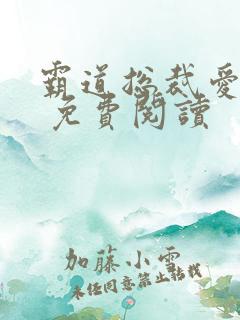 霸道总裁爱
免費閱讀
加藤小雪
未经同意禁止转载